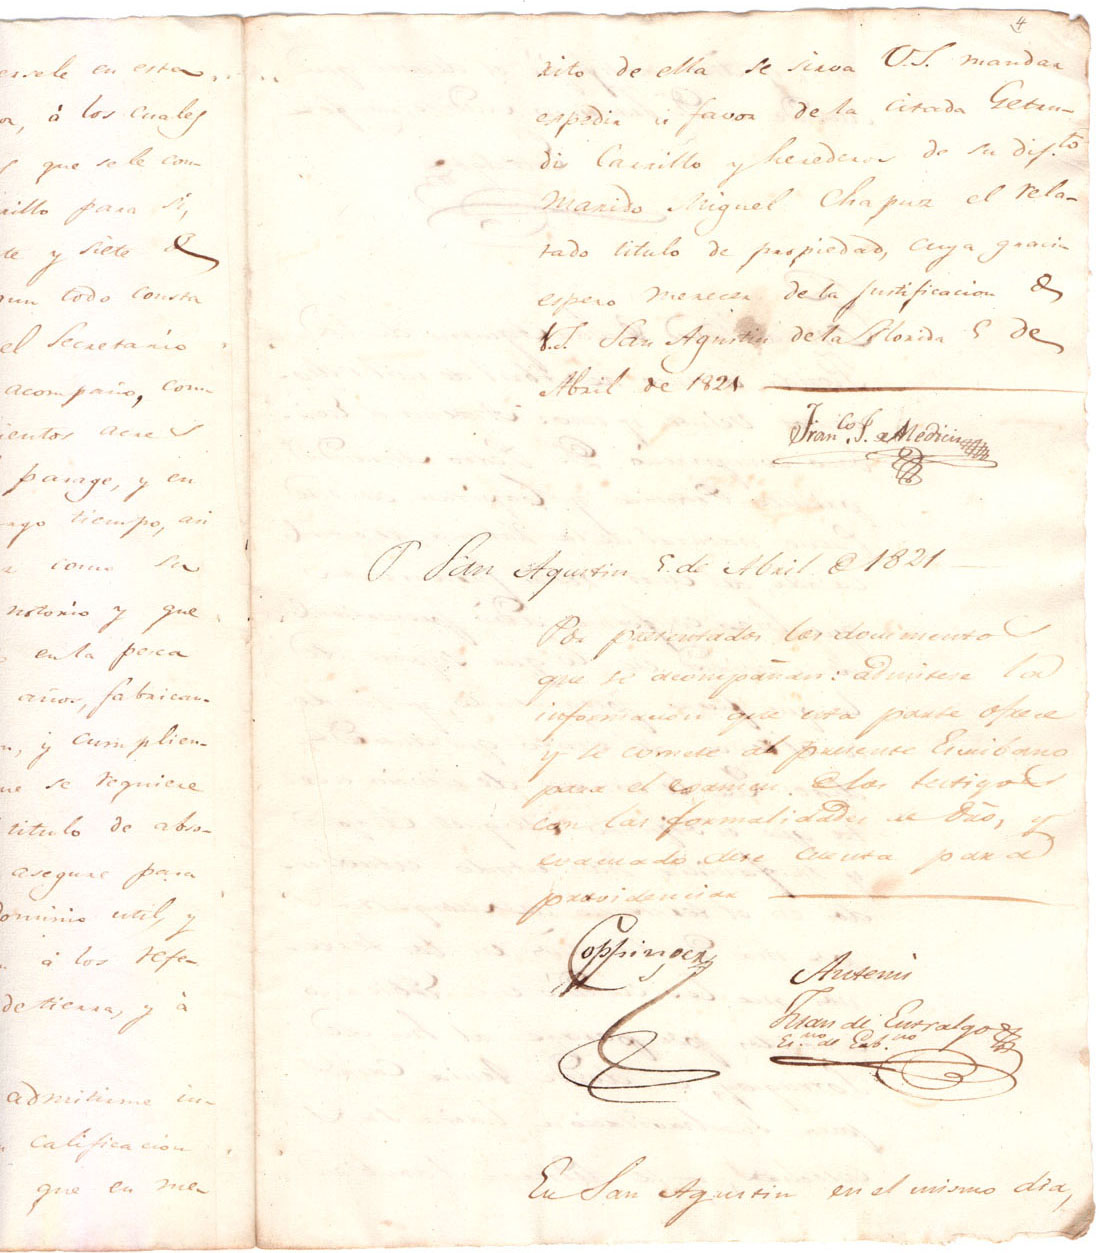 ersele en esta
or, á los cuales
que se le con-
rillo para sí,
te y siete de
gun todo consta
el Secretario
acompaño, com-
ientos acres
parage, y en
argo tiempo, asi
como su
notorio y que
en la pesca
años, fabrican-
n, y cumplien-
ue se requiere
titulo de abso-
asegure para
dominio util, y
á los refe-
de tierra, y à
admitirme in-
calificacion
que en me-
4
rito de ella se sirva V.S. mandar
espedir á favor de la citada Getru-
di Carrillo y herederos de su dif.to
Marido Miguel Chapuz el rela-
tado titulo de propiedad, cuya gracia
espero merecer de la justificacion de
V.S. San Agustin de la Florida 5 de
Abril de 1821
Franco. J. de Medicis
San Agustin 5. de Abril de 1821
Por presentados los documentos
que se acompañan: admitese la
informacion que esta parte ofrece
y se comete al presente Escribano
para el examen de los testigos
con las formalidades de dro, y
evacuado dese cuenta para
providenciar
Coppinger
Antemi
Juan de Entralgo
Es.no de Gob.no
En San Agustin en el mismo dia,